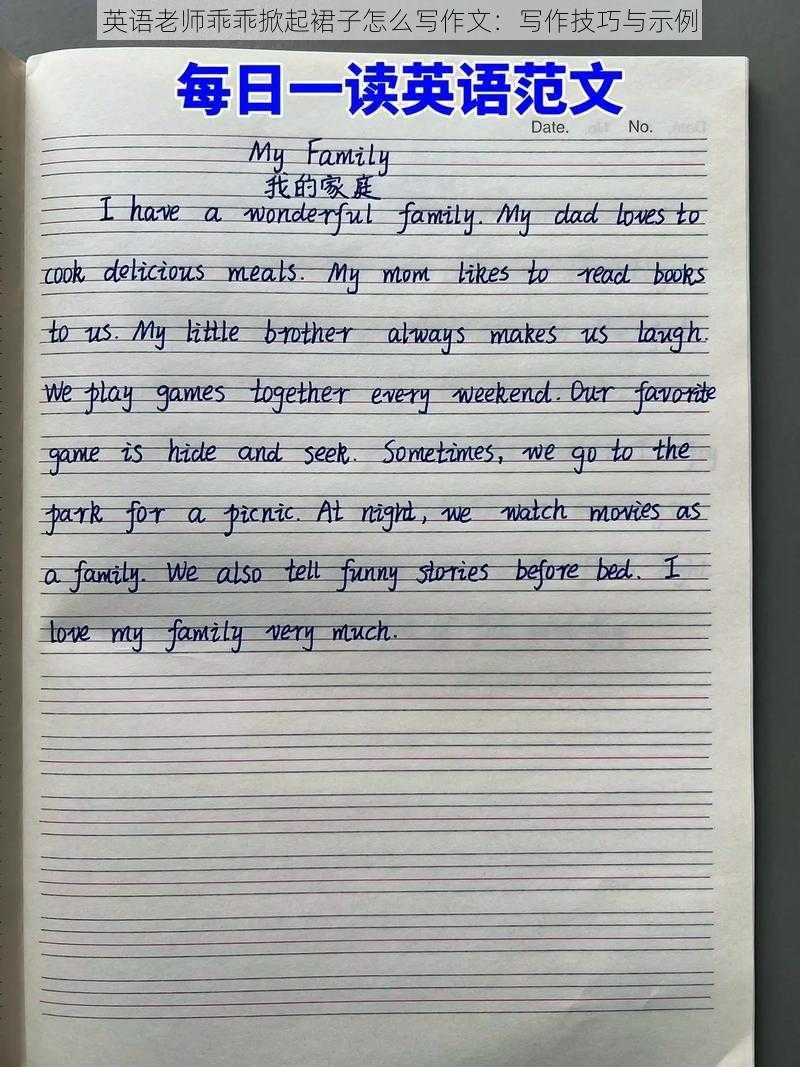 英语老师乖乖掀起裙子怎么写作文：写作技巧与示例
每日一读英语范文
Date. No.
My Family
我的家庭
I have a wonderful family. My dad loves to
cook delicious meals. My mom likes to read books
to us. My little brother always makes us laugh.
We play games together every weekend. Our favorite
game is hide and seek. Sometimes, we go to the
park for a picnic. At night, we watch movies as
a family. We also tell funny stories before bed. I
love my family very much.